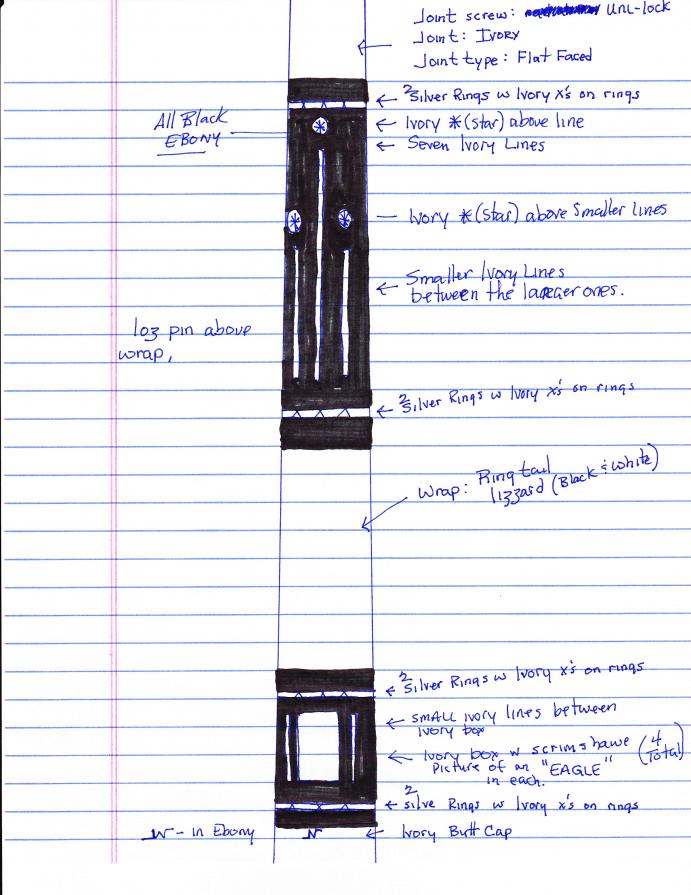 Joint screw: Uni-lock
Joint: Ivory
Joint type: Flat Faced
2 Silver Rings w Ivory x's on rings
All Black
EBONY
Ivory * (star) above line
Seven Ivory Lines
Ivory * (star) above Smaller lines
Smaller Ivory Lines
between the larger ones.
103 pin above
wrap,
2 Silver Rings w Ivory x's on rings
Wrap: Ring tail
lizzard (Black & White)
2 Silver Rings w Ivory x's on rings
SMALL ivory lines between
ivory box
Ivory box w scrimshawe (4 Total)
Picture of an "EAGLE"
in each.
2 silve Rings w Ivory x's on rings
- in Ebony
Ivory Butt Cap